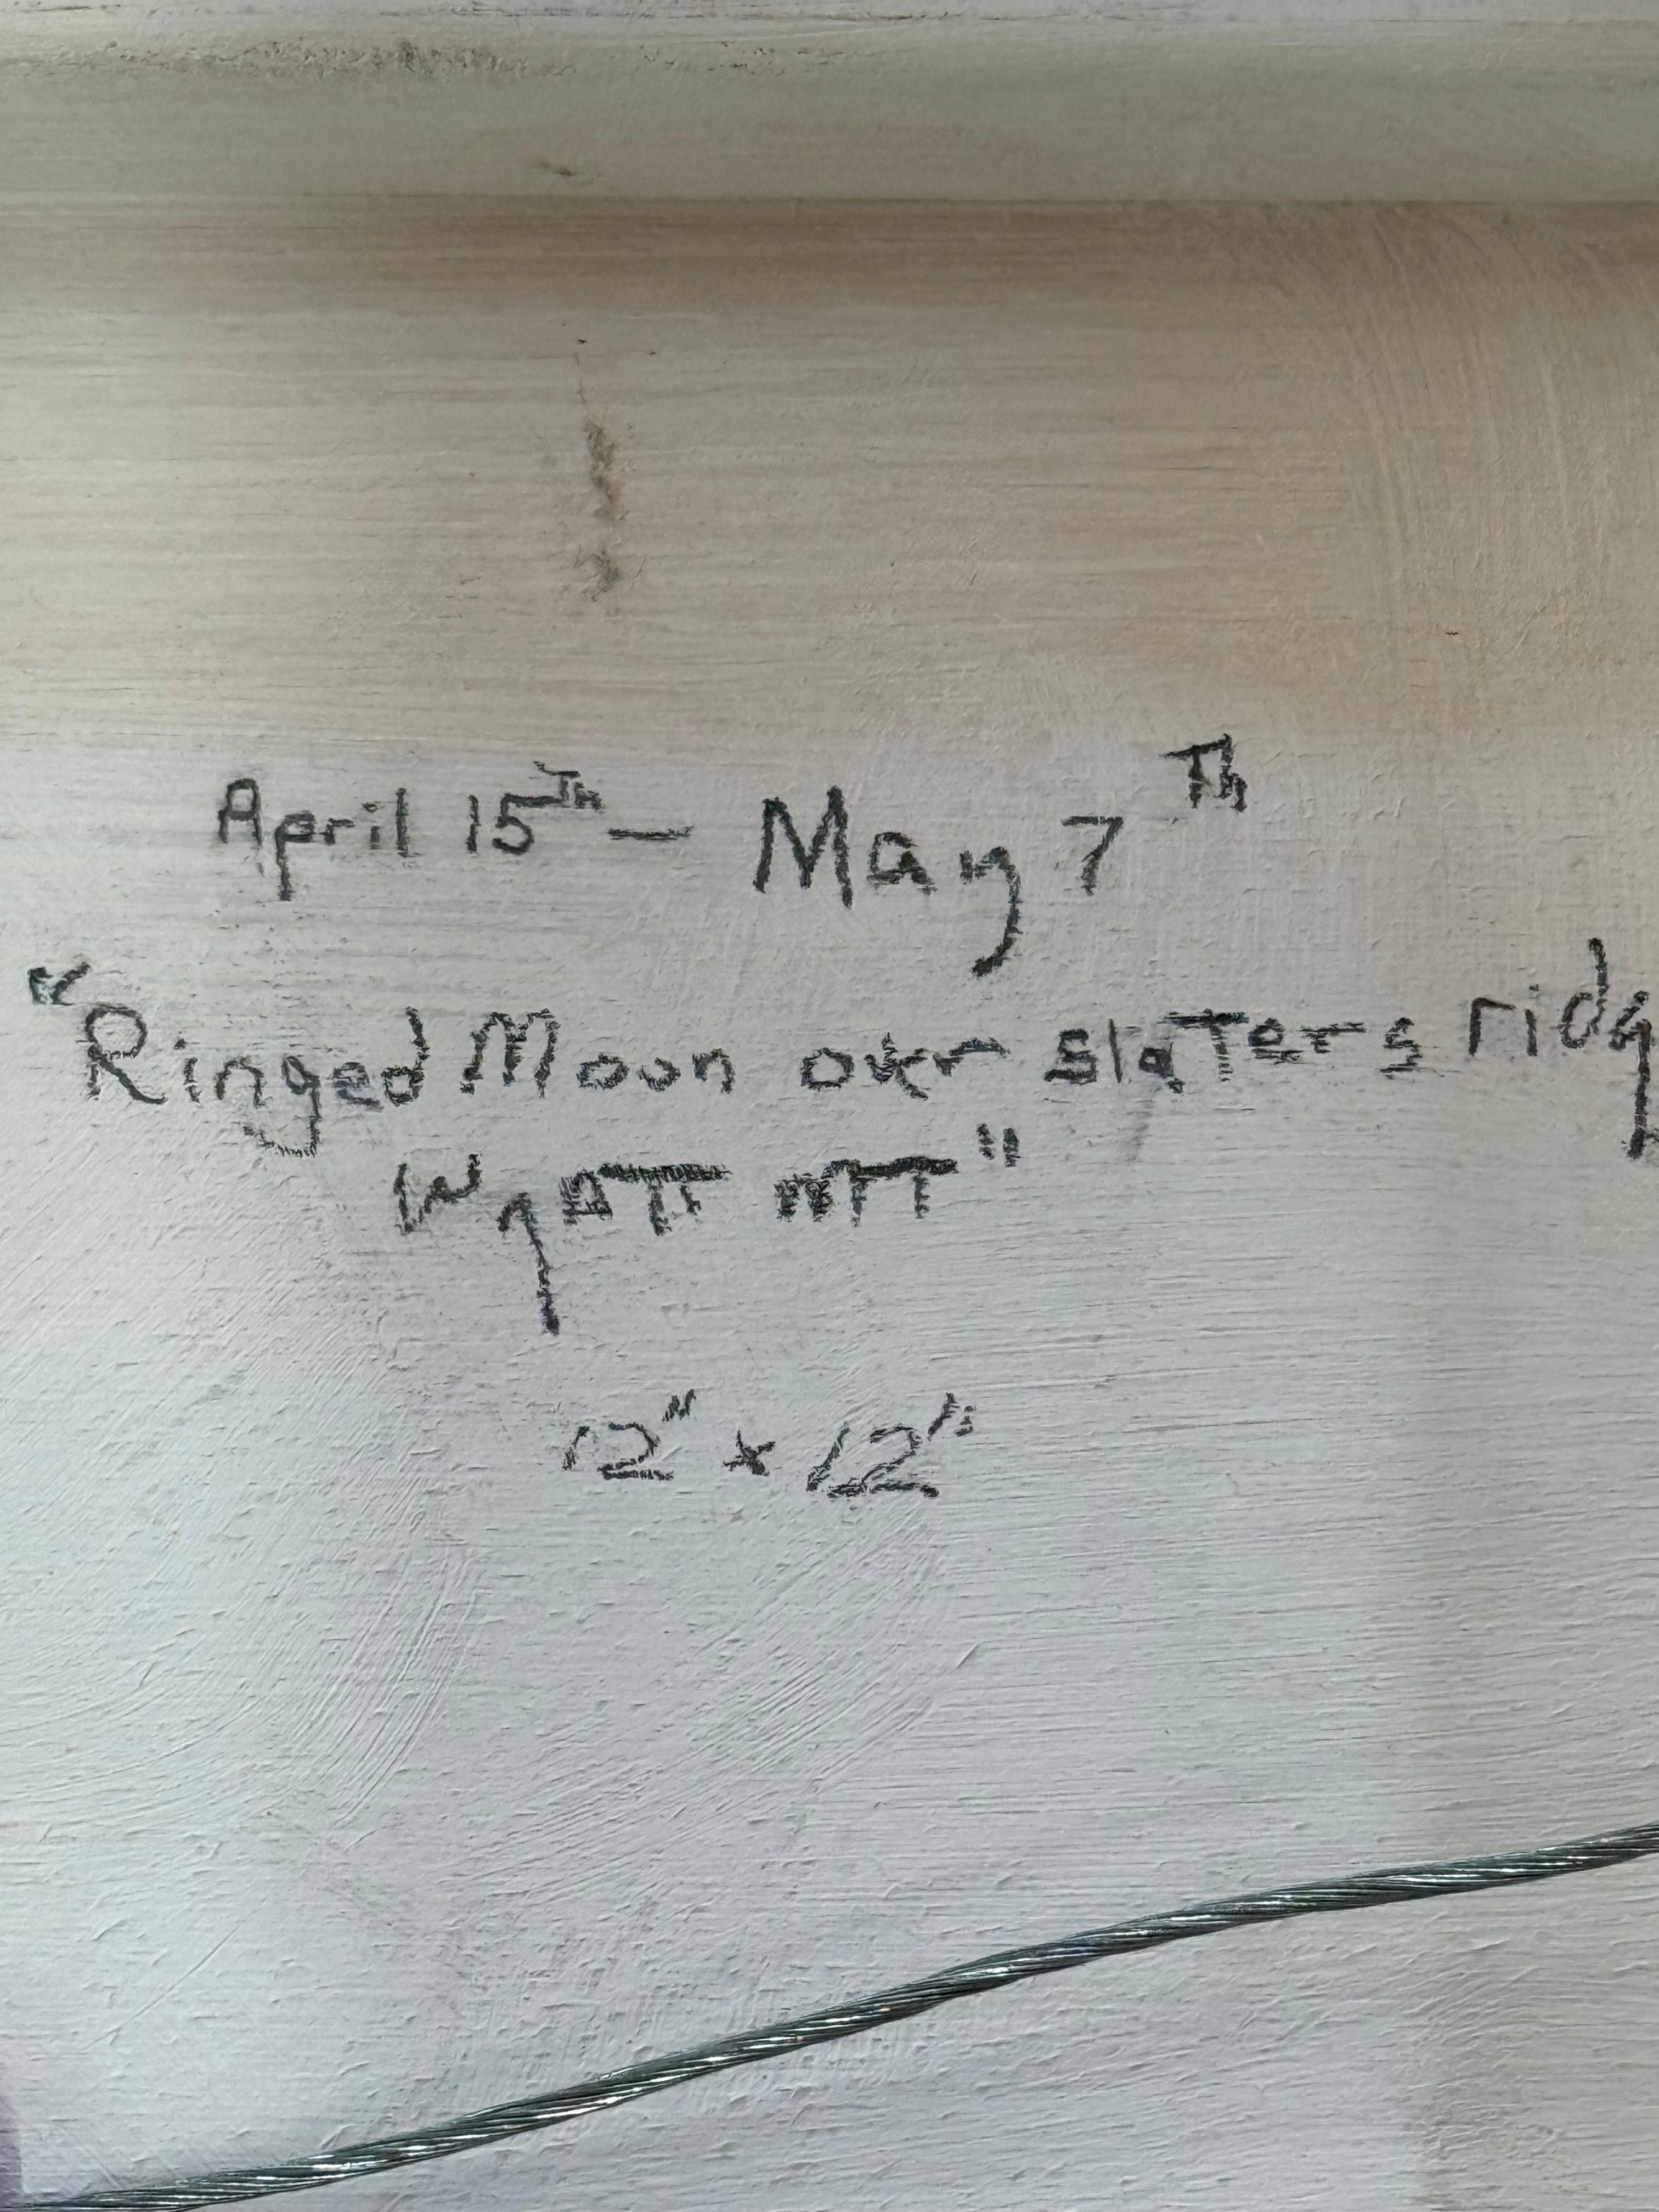 April 15Th — May 7Th
"Ringed Moon over slaTers ridg
WyaTT MT"
12" x 12"